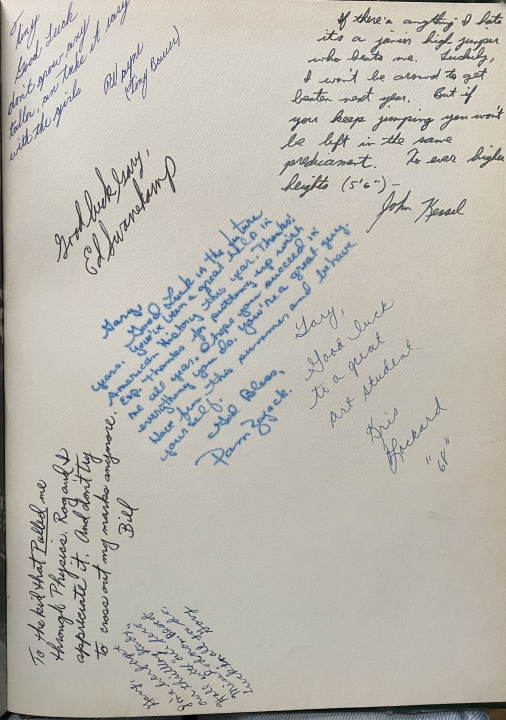 Tiny
Good Luck
don't grow any
taller, an take it easy
with the girls
Wayne
(Tony Bauer)
If there's anything I hate
it's a junior high jumper
who beats me. Luckily,
I won't be around to get
beaten next year. But if
you keep jumping you won't
be left in the same
predicament. To ever higher
heights (5'6") —
John Kessel
Good luck Gary,
Ed Swanekamp
Gary,
Good Luck in the future
years. You've been a great help in
American History this year. Thanks!
Esp. Thanks for putting up with
me all year. I hope you succeed in
everything you do. you're a great guy.
Have fun this summer and behave
yourself.
God Bless,
Pam Zyjack.
Gary,
Good luck
to a great
art student.
Kris
Lockard
"68"
To the kid that Pulled me
through Physics. Rog and I
appreciate it. And don't try
to cross out my marks anymore.
Bill
Gary,
I'm
our
with all
Miss
Luck